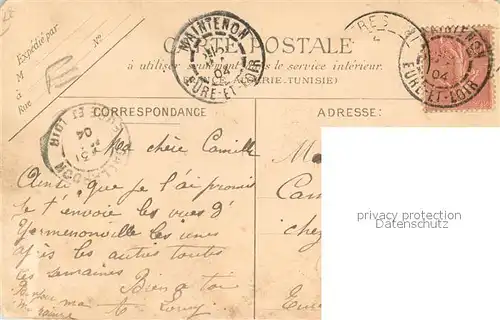 Expédié par
M
à
Rue
No.
CARTE POSTALE
à utiliser seulement dans le service intérieur.
(FRANCE, ALGÉRIE, TUNISIE)
MAINTENON
04
EURE-ET-LOIR
MAINTENON
04
EURE-ET-LOIR
CORRESPONDANCE
ADRESSE:
31
04
Ma chère Camille
Ainsi que je l'ai promis
je t'envoie les vues d'
Yermenonville les unes
après les autres toutes
les semaines
Bien à toi
Bonjour
ma
Ma
Cam
chez
Eure
privacy protection
watermark